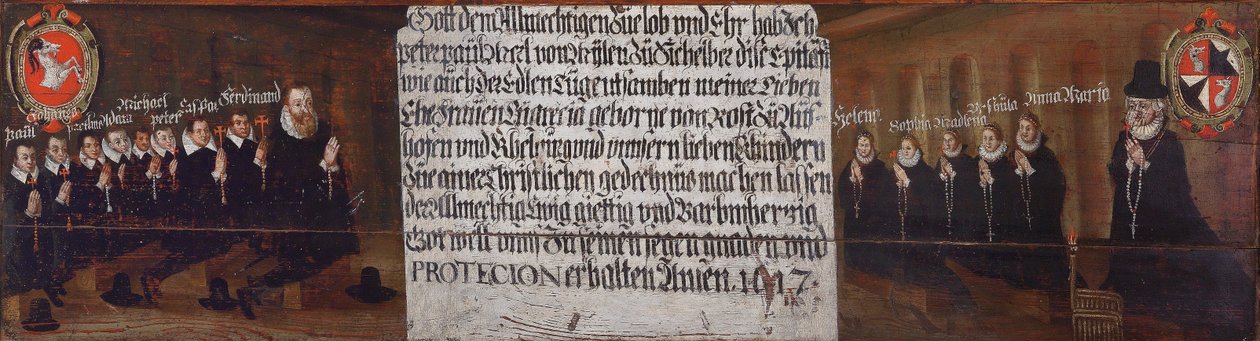 Paul
Johannes
Barthlme
Michael
Peter
Caspar
Ferdinand
Gott dem Allmechtigen Zue lob vnd Ehr hab Ich
Peter paul von Zu dise Epitaff
wie auch der Edlen Tugentsamben meiner Lieben
Ehe Frauen Maria geborne von Rost Zu Auf
hofen vnd vnd vnnsern lieben Khindern
Zue ainer Christlichen gedechnus machen lassen
der Allmechtig Ewig giettig vnd Barmherzig
Got welt vnns In seinen segen gnaden vnd
PROTECION erhalten Amen. 1617.
Helena
Sophia
Madlena
Vrshula
Anna Maria